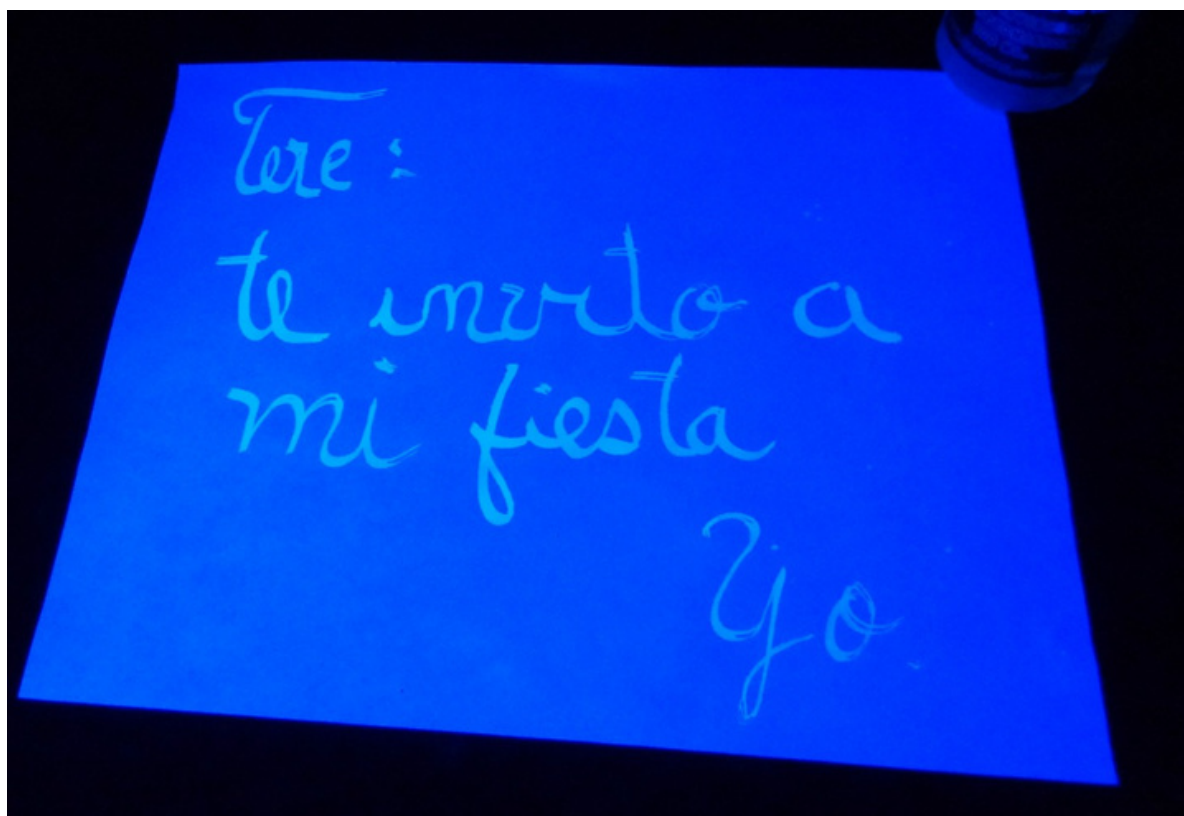 Tere:
te invito a
mi fiesta
Yo